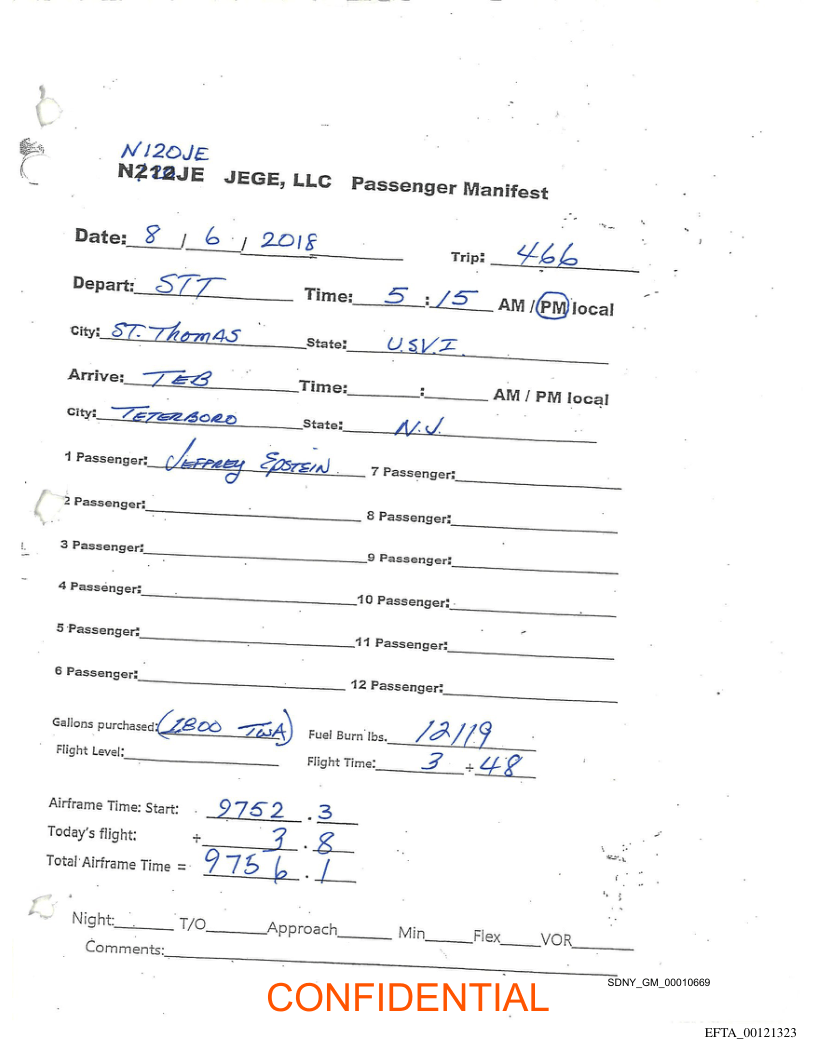 N120JE
N212JE JEGE, LLC Passenger Manifest
Date: 8 / 6 / 2018
Trip: 466
Depart: STT Time: 5 : 15 AM / PM local
City: ST. THOMAS State: U.S.V.I.
Arrive: TEB Time: : AM / PM local
City: TETERBORO State: N.J.
1 Passenger: JEFFREY EPSTEIN 7 Passenger:
2 Passenger: 8 Passenger:
3 Passenger: 9 Passenger:
4 Passenger: 10 Passenger:
5 Passenger: 11 Passenger:
6 Passenger: 12 Passenger:
Gallons purchased: (1,800 TWA) Fuel Burn lbs. 12119
Flight Level: Flight Time: 3 + 48
Airframe Time: Start: 9752 . 3
Today's flight: + 3 . 8
Total Airframe Time = 9756 . 1
Night: T/O Approach Min Flex VOR
Comments:
SDNY_GM_00010669
CONFIDENTIAL
EFTA_00121323